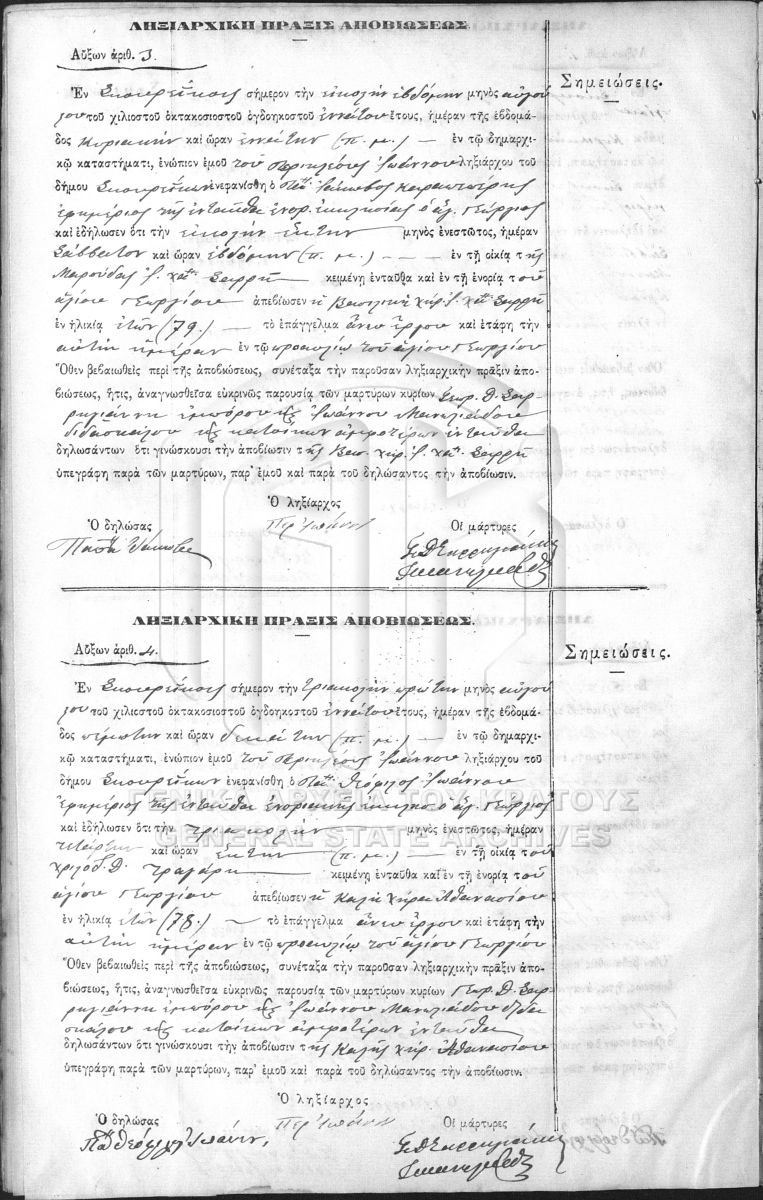 ΛΗΞΙΑΡΧΙΚΗ ΠΡΑΞΙΣ ΑΠΟΒΙΩΣΕΩΣ
Αὔξων ἀριθ. 3.
Σημειώσεις.
Ἐν σήμερον τὴν εἰκοστὴν ἑβδόμην μηνὸς αὐγού
στου τοῦ χιλιοστοῦ ὀκτακοσιοστοῦ ὀγδοηκοστοῦ ἐννάτου ἔτους, ἡμέραν τῆς ἑβδομά-
δος Κυριακὴν καὶ ὥραν ἐννάτην (π. μ.) — ἐν τῷ δημαρχι-
κῷ καταστήματι, ἐνώπιον ἐμοῦ τοῦ Περικλέους Ἰωάννου ληξιάρχου τοῦ
δήμου ἐνεφανίσθη ὁ Παπ. Ἰάκωβος
ἐφημέριος τῆς ἐνταῦθα ἐνορ. ἐκκλησίας ὁ ἅγ. Γεώργιος
καὶ ἐδήλωσεν ὅτι τὴν εἰκοστὴν ἕκτην μηνὸς ἐνεστῶτος, ἡμέραν
Σάββατον καὶ ὥραν ἑβδόμην (π. μ.) — — ἐν τῇ οἰκίᾳ τῆς
κειμένῃ ἐνταῦθα καὶ ἐν τῇ ἐνορίᾳ τοῦ
ἁγίου Γεωργίου ἀπεβίωσεν ἡ χήρ.
ἐν ἡλικίᾳ ἐτῶν (79.) — τὸ ἐπάγγελμα ἄνευ ἔργου καὶ ἐτάφη τὴν
αὐτὴν ἡμέραν ἐν τῷ προαυλίῳ τοῦ ἁγίου Γεωργίου
Ὅθεν βεβαιωθεὶς περὶ τῆς ἀποβιώσεως, συνέταξα τὴν παροῦσαν ληξιαρχικὴν πρᾶξιν ἀπο-
βιώσεως, ἥτις, ἀναγνωσθεῖσα εὐκρινῶς παρουσίᾳ τῶν μαρτύρων κυρίων Γεωρ. Δ. Σαρ-
ρηγιάννη ἐμπόρου καὶ Ἰωάννου Μανωλιάδου
διδασκάλου καὶ κατοίκων ἀμφοτέρων ἐνταῦθα
δηλωσάντων ὅτι γινώσκουσι τὴν ἀποβίωσιν τῆς χήρ.
ὑπεγράφη παρὰ τῶν μαρτύρων, παρ' ἐμοῦ καὶ παρὰ τοῦ δηλώσαντος τὴν ἀποβίωσιν.
Ὁ ληξίαρχος
Ὁ δηλώσας Περ. Ἰωάννου Οἱ μάρτυρες
Γ. Δ. Σαρρηγιάννης
ΛΗΞΙΑΡΧΙΚΗ ΠΡΑΞΙΣ ΑΠΟΒΙΩΣΕΩΣ.
Αὔξων ἀριθ. 4.
Σημειώσεις.
Ἐν σήμερον τὴν τριακοστὴν πρώτην μηνὸς αὐγού
στου τοῦ χιλιοστοῦ ὀκτακοσιοστοῦ ὀγδοηκοστοῦ ἐννάτου ἔτους, ἡμέραν τῆς ἑβδομά-
δος πέμπτην καὶ ὥραν δεκάτην (π. μ.) — ἐν τῷ δημαρχι-
κῷ καταστήματι, ἐνώπιον ἐμοῦ τοῦ Περικλέους Ἰωάννου ληξιάρχου τοῦ
δήμου ἐνεφανίσθη ὁ Παπ. Θεόφιλος Ἰωάννου
ἐφημέριος τῆς ἐνταῦθα ἐνοριακῆς ἐκκλησ. ὁ ἅγ. Γεώργιος
καὶ ἐδήλωσεν ὅτι τὴν τριακοστὴν μηνὸς ἐνεστῶτος, ἡμέραν
τετάρτην καὶ ὥραν ἕκτην (π. μ.) — ἐν τῇ οἰκίᾳ τοῦ
κειμένῃ ἐνταῦθα καὶ ἐν τῇ ἐνορίᾳ τοῦ
ἁγίου Γεωργίου ἀπεβίωσεν ἡ Καλὴ χήρα Ἀθανασίου
ἐν ἡλικίᾳ ἐτῶν (78.) — τὸ ἐπάγγελμα ἄνευ ἔργου καὶ ἐτάφη τὴν
αὐτὴν ἡμέραν ἐν τῷ προαυλίῳ τοῦ ἁγίου Γεωργίου
Ὅθεν βεβαιωθεὶς περὶ τῆς ἀποβιώσεως, συνέταξα τὴν παροῦσαν ληξιαρχικὴν πρᾶξιν ἀπο-
βιώσεως, ἥτις, ἀναγνωσθεῖσα εὐκρινῶς παρουσίᾳ τῶν μαρτύρων κυρίων Γεωρ. Δ. Σαρ-
ρηγιάννη ἐμπόρου καὶ Ἰωάννου Μανωλιάδου διδα
σκάλου καὶ κατοίκων ἀμφοτέρων ἐνταῦθα
δηλωσάντων ὅτι γινώσκουσι τὴν ἀποβίωσιν τῆς Καλῆς χήρ. Ἀθανασίου
ὑπεγράφη παρὰ τῶν μαρτύρων, παρ' ἐμοῦ καὶ παρὰ τοῦ δηλώσαντος τὴν ἀποβίωσιν.
Ὁ ληξίαρχος
Ὁ δηλώσας Περ. Ἰωάννου Οἱ μάρτυρες
Γ. Δ. Σαρρηγιάννης
ΓΕΝΙΚΑ ΑΡΧΕΙΑ ΤΟΥ ΚΡΑΤΟΥΣ
GENERAL STATE ARCHIVES